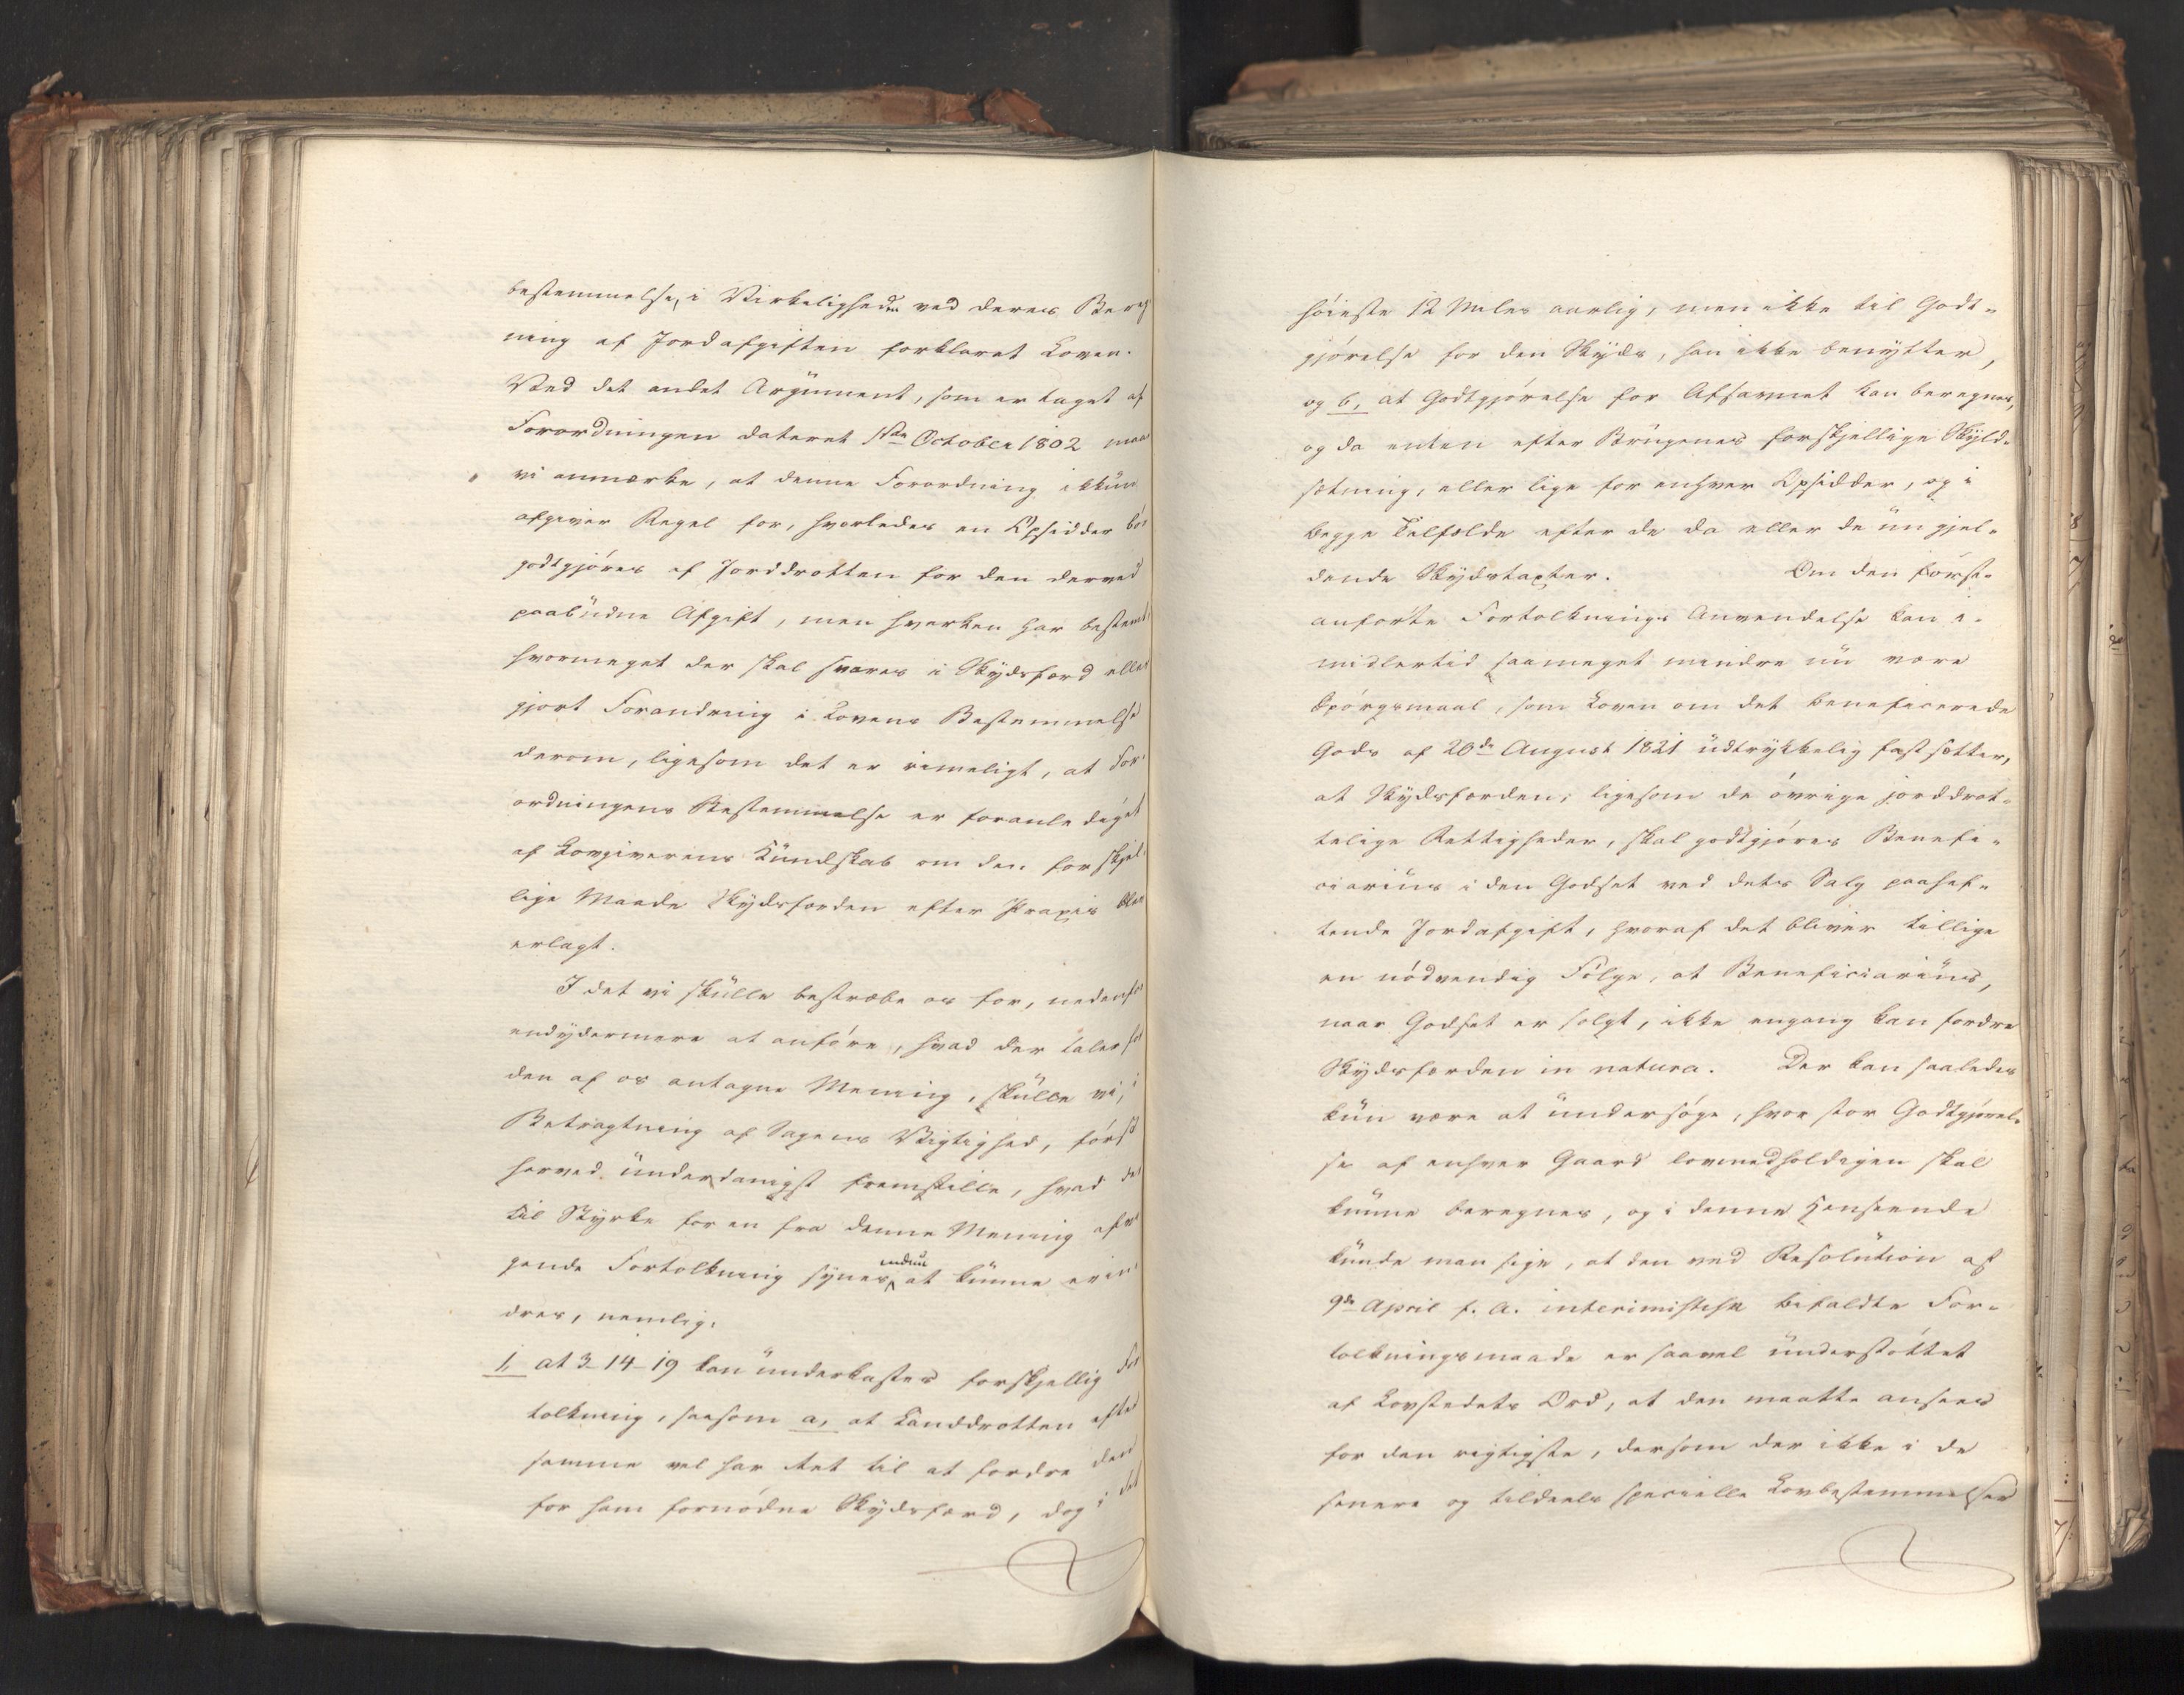 bestemmelse, i Virkeligheden ved deres Bereg
ning af Jordafgiften forklaret Loven.
Ved det andet Argument, som er taget af
Forordningen dateret 1ste October 1802 maa
vi anmærke, at denne Forordning ikkun
afgiver Regel for, hvorledes en Opsidder bör
godtgjöres af Jorddrotten for den derved
paabudne Afgift, men hverken har bestemt
hvormeget der skal svares i Skydsfærd eller
gjort Forandring i Lovens Bestemmelse
derom, ligesom det er rimeligt, at For-
ordningens Bestemmelse er foranlediget
af Lovgiverens Kundskab om den forskjel-
lige Maade Skydsfærden efter Praxis blev
erlagt.
I det vi skulle bestræbe os for, nedenfor
endydermere at anföre, hvad der taler for
den af os antagne Mening, skulle vi, i
Betragtning af Sagens Vigtighed, först
herved underdanigst fremstille, hvad der
til Styrke for en fra denne Mening afvi
gende Fortolkning synes endnu at kunne erin
dres, nemlig.
1, at 3-14-19 kan underkastes forskjellig For
tolkning, saasom a, at Landdrotten efter
samme vel har Ret til at fordre den
for ham fornödne Skydsfærd, dog i det
höieste 12 Miles aarlig, men ikke til Godt-
gjörelse for den Skyds, han ikke benytter,
og b, at Godtgjörelse for Afsavnet kan beregnes,
og da enten efter Brugenes forskjellige Skyld-
sætning, eller lige for enhver Opsidder, og i
begge Tilfælde efter de da eller de nu gjel-
dende Skydstaxter. Om den förste
anförte Fortolknings Anvendelse kan i-
midlertid saameget mindre nu være
Spörgsmaal, som Loven om det beneficerede
Gods af 20de August 1821 udtrykkelig fastsætter,
at Skydsfærden, ligesom de övrige jorddrot-
telige Rettigheder, skal godtgjöres Benefi-
ciarius i den Godset ved dets Salg paahef-
tende Jordafgift, hvoraf det bliver tillige
en nödvendig Fölge, at Beneficiarius,
naar Godset er solgt, ikke engang kan fordre
Skydsfærden in natura. Der kan saaledes
kun være at undersöge, hvor stor Godtgjörel-
se af enhver Gaard lovmedholdigen skal
kunne beregnes, og i denne Henseende
kunde man sige, at den ved Resolution af
9de April f. A. interimistisk befaldte For-
tolkningsmaade er saavel understöttet
af Lovstedets Ord, at den maatte ansees
for den rigtigste, dersom der ikke i de
senere og tildeels specielle Lovbestemmelser